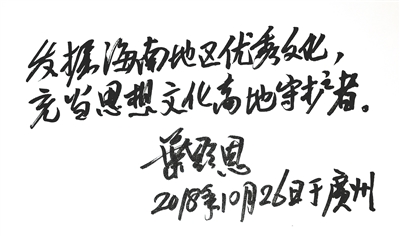 发掘海南地区优秀文化，
充当思想文化高地守护者。
葉显恩
2018年10月26日于廣州